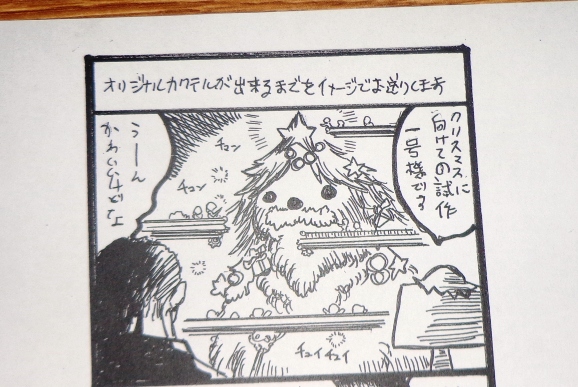 オリジナルカクテルが出来るまでをイメージでお送りします
クリスマスに
向けての試作
一号様です
うーん
かわいいけどさ
チュン
チュン
チュイチュイ